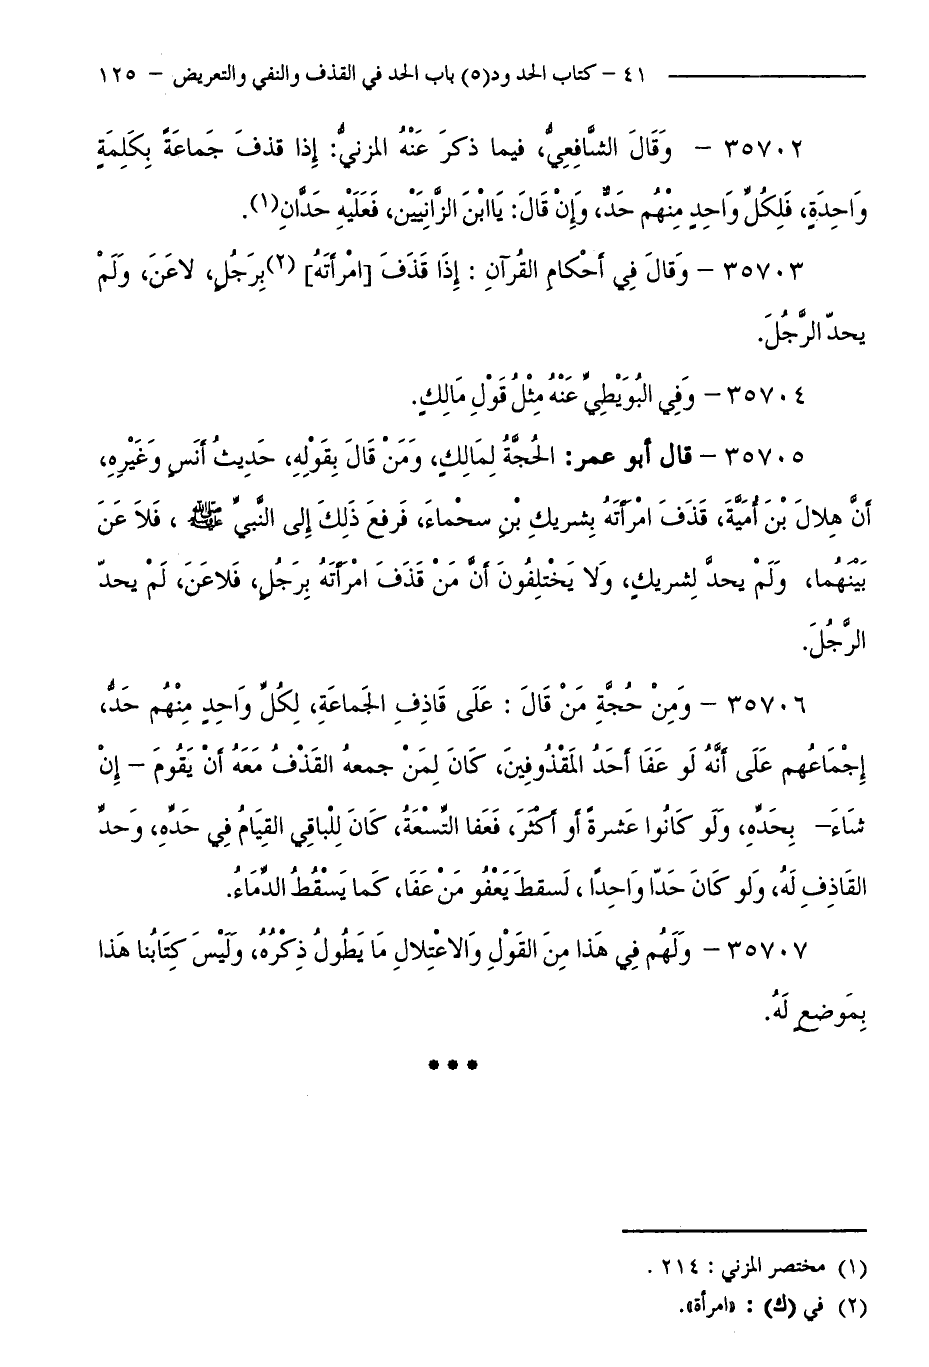 ٤١ – كتاب الحدود(٥) باب الحد في القذف والنفي والتعريض – ١٢٥
٣٥٧٠٢ – وَقَالَ الشَّافِعِيُّ، فيما ذكرَ عَنْهُ المزنيُّ: إِذا قذفَ جَماعَةً بِكَلِمَةٍ
وَاحِدَةٍ، فَلِكُلِّ وَاحِدٍ مِنْهُم حَدٌّ، وَإِنْ قَالَ: يَاابْنَ الزَّانِيَيْنِ، فَعَلَيْهِ حَدَّانِ(١).
٣٥٧٠٣ – وَقالَ فِي أَحْكامِ القُرآنِ : إِذَا قَذَفَ [امْرأَتَهُ] (٢)بِرَجُلٍ، لاعَنَ، وَلَمْ
يحدّ الرَّجُلَ.
٣٥٧٠٤ – وَفِي البُوَيْطِيِّ عَنْهُ مِثْلُ قَوْلِ مَالِكٍ.
٣٥٧٠٥ – قال أبو عمر: الحُجَّةُ لِمَالِكٍ، وَمَنْ قَالَ بِقَوْلِهِ، حَدِيثُ أَنَسٍ وَغَيْرِهِ،
أَنَّ هِلالَ بْنَ أُمَيَّةَ، قَذَفَ امْرَأَتَهُ بِشريكِ بْنِ سحْماءَ، فَرفعَ ذَلِكَ إِلى النَّبِيِّ ﷺ ، فَلاَعَنَ
بَيْنَهُما، وَلَمْ يحدَّ لِشريكٍ، وَلا يَخْتلِفُونَ أَنَّ مَنْ قَذَفَ امْرأَتَهُ بِرَجُلٍ، فَلاعَنَ، لَمْ يحدّ
الرَّجُلَ.
٣٥٧٠٦ – وَمِنْ حُجَّةِ مَنْ قَالَ : عَلَى قَاذِفِ الجَماعَةِ، لِكُلِّ وَاحِدٍ مِنْهُم حَدٌّ،
إِجْمَاعُهم عَلَى أَنَّهُ لَو عَفَا أَحَدُ المَقْذُوفِينَ، كَانَ لِمَنْ جمعهُ القَذْفُ مَعَهُ أَنْ يَقُومَ – إِنْ
شاءَ– بِحَدِّهِ، وَلَو كَانُوا عَشرةً أَو أَكْثَرَ، فَعَفا التِّسْعَةُ، كَانَ لِلْباقِي القِيَامُ فِي حَدِّهِ، وَحدُّ
القَاذِفِ لَهُ، وَلَو كَانَ حَدّا وَاحِدًا ، لَسقطَ بَعْفُو مَنْ عَفَا، كَما يَسْقُطُ الدِّمَاءُ.
٣٥٧٠٧ – وَلَهُم فِي هَذا مِنَ القَوْلِ وَالاعْتِلالِ مَا يَطُولُ ذِكْرُهُ، وَلَيْسَ كِتَابُنا هَذا
بِمَوضعٍ لَهُ.
• • •
(١) مختصر المزني : ٢١٤ .
(٢) في (ك) : «امرأة».